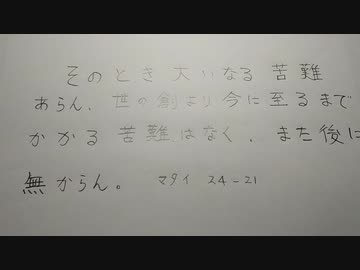 そのとき大いなる苦難
あらん、世の創より今に至るまで
かかる苦難はなく、また後に
無からん。 マタイ 24-21